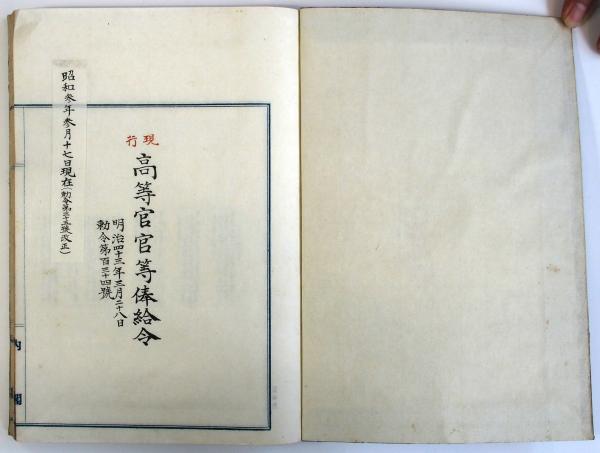 現行
高等官官等俸給令
明治四十三年三月二十八日
勅令第百三十四號
昭和参年参月十七日現在(勅令第三十五號改正)
内閣